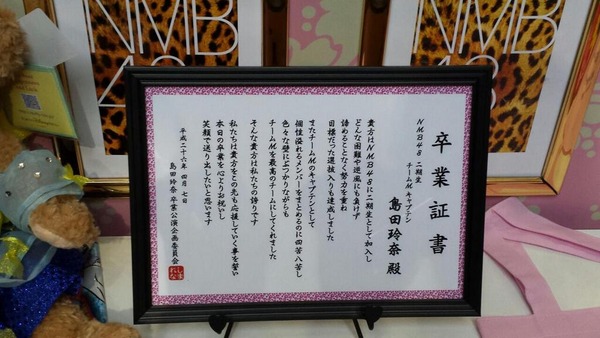 NMB
48
NMB
卒業証書
NMB48 二期生
チームMキャプテン
島田玲奈 殿
貴方はNMB48に二期生として加入し
どんな困難や逆風にも負けず
諦めることなく努力を重ね
目標だった選抜入りも達成しました
またチームMのキャプテンとして
個性溢れるメンバーをまとめるのに四苦八苦し
色々な壁にぶつかりながらも
チームMを最高のチームにしてくれました
そんな貴方は私たちの誇りです
私たちは貴方をこの先も応援していく事を誓い
本日の卒業を心よりお祝いし
笑顔で送り出したいと思います
平成二十六年 四月 七日
島田玲奈 卒業公演企画委員会
しまだ
れな